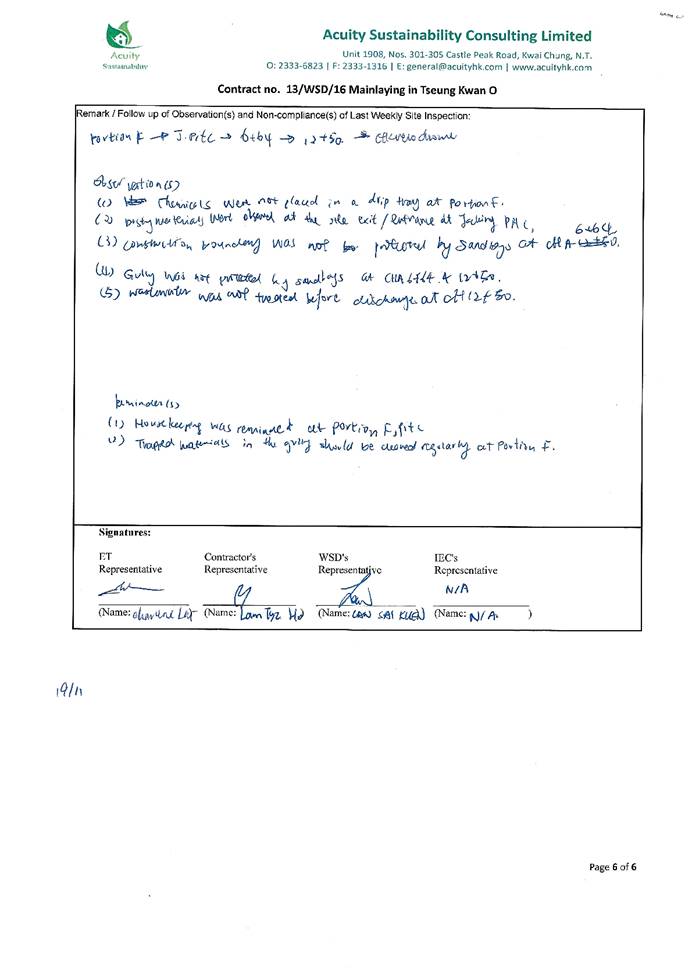 Acuity Sustainability Consulting Limited
Acuity
Sustainability
Unit 1908, Nos. 301-305 Castle Peak Road, Kwai Chung, N.T.
O: 2333-6823 | F: 2333-1316 | E: general@acuityhk.com | www.acuityhk.com
Contract no. 13/WSD/16 Mainlaying in Tseung Kwan O
Remark / Follow up of Observation(s) and Non-compliance(s) of Last Weekly Site Inspection:
Portion F → J. Pit C → 6+64 → 12+50 →
Observation(s)
(1) Chemicals were not placed in a drip tray at Portion F.
(2) Dusty materials were observed at the site exit / entrance at Jacking Pit C.
(3) Construction boundary was not protected by sandbags at CHA 6+64.
(4) Gully was not protected by sandbags at CHA 6+64 & 12+50.
(5) Wastewater was not treated before discharge at CH 12+50.
Reminder(s)
(1) Housekeeping was reminded at Portion F, Pit C
(2) Trapped materials in the gully should be cleaned regularly at Portion F.
Signatures:
ET Representative
Contractor's Representative
WSD's Representative
IEC's Representative
N/A
(Name: (Name: Lam Tsz Ho (Name: LAW SAI KUEN) (Name: N/A. )
19/11
Page 6 of 6